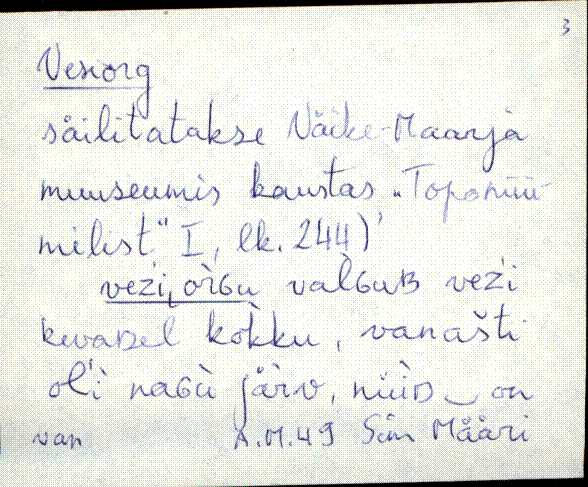 3
Vesiorg
säilitatakse Väike-Maarja
muuseumis kaustas „Toponüü-
milist" I, lk. 244)
vez̀i, òrɢu valɢuʙ vez̀i
kevaᴅel kòkku, vanašti
ol̀i naɢù järv, nüüᴅ on
van A.M.49 Sim Määri